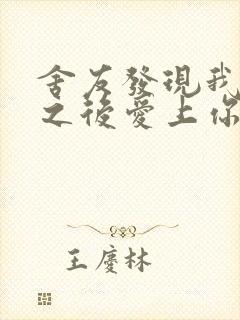 舍友發現我
之後愛上你
王慶林